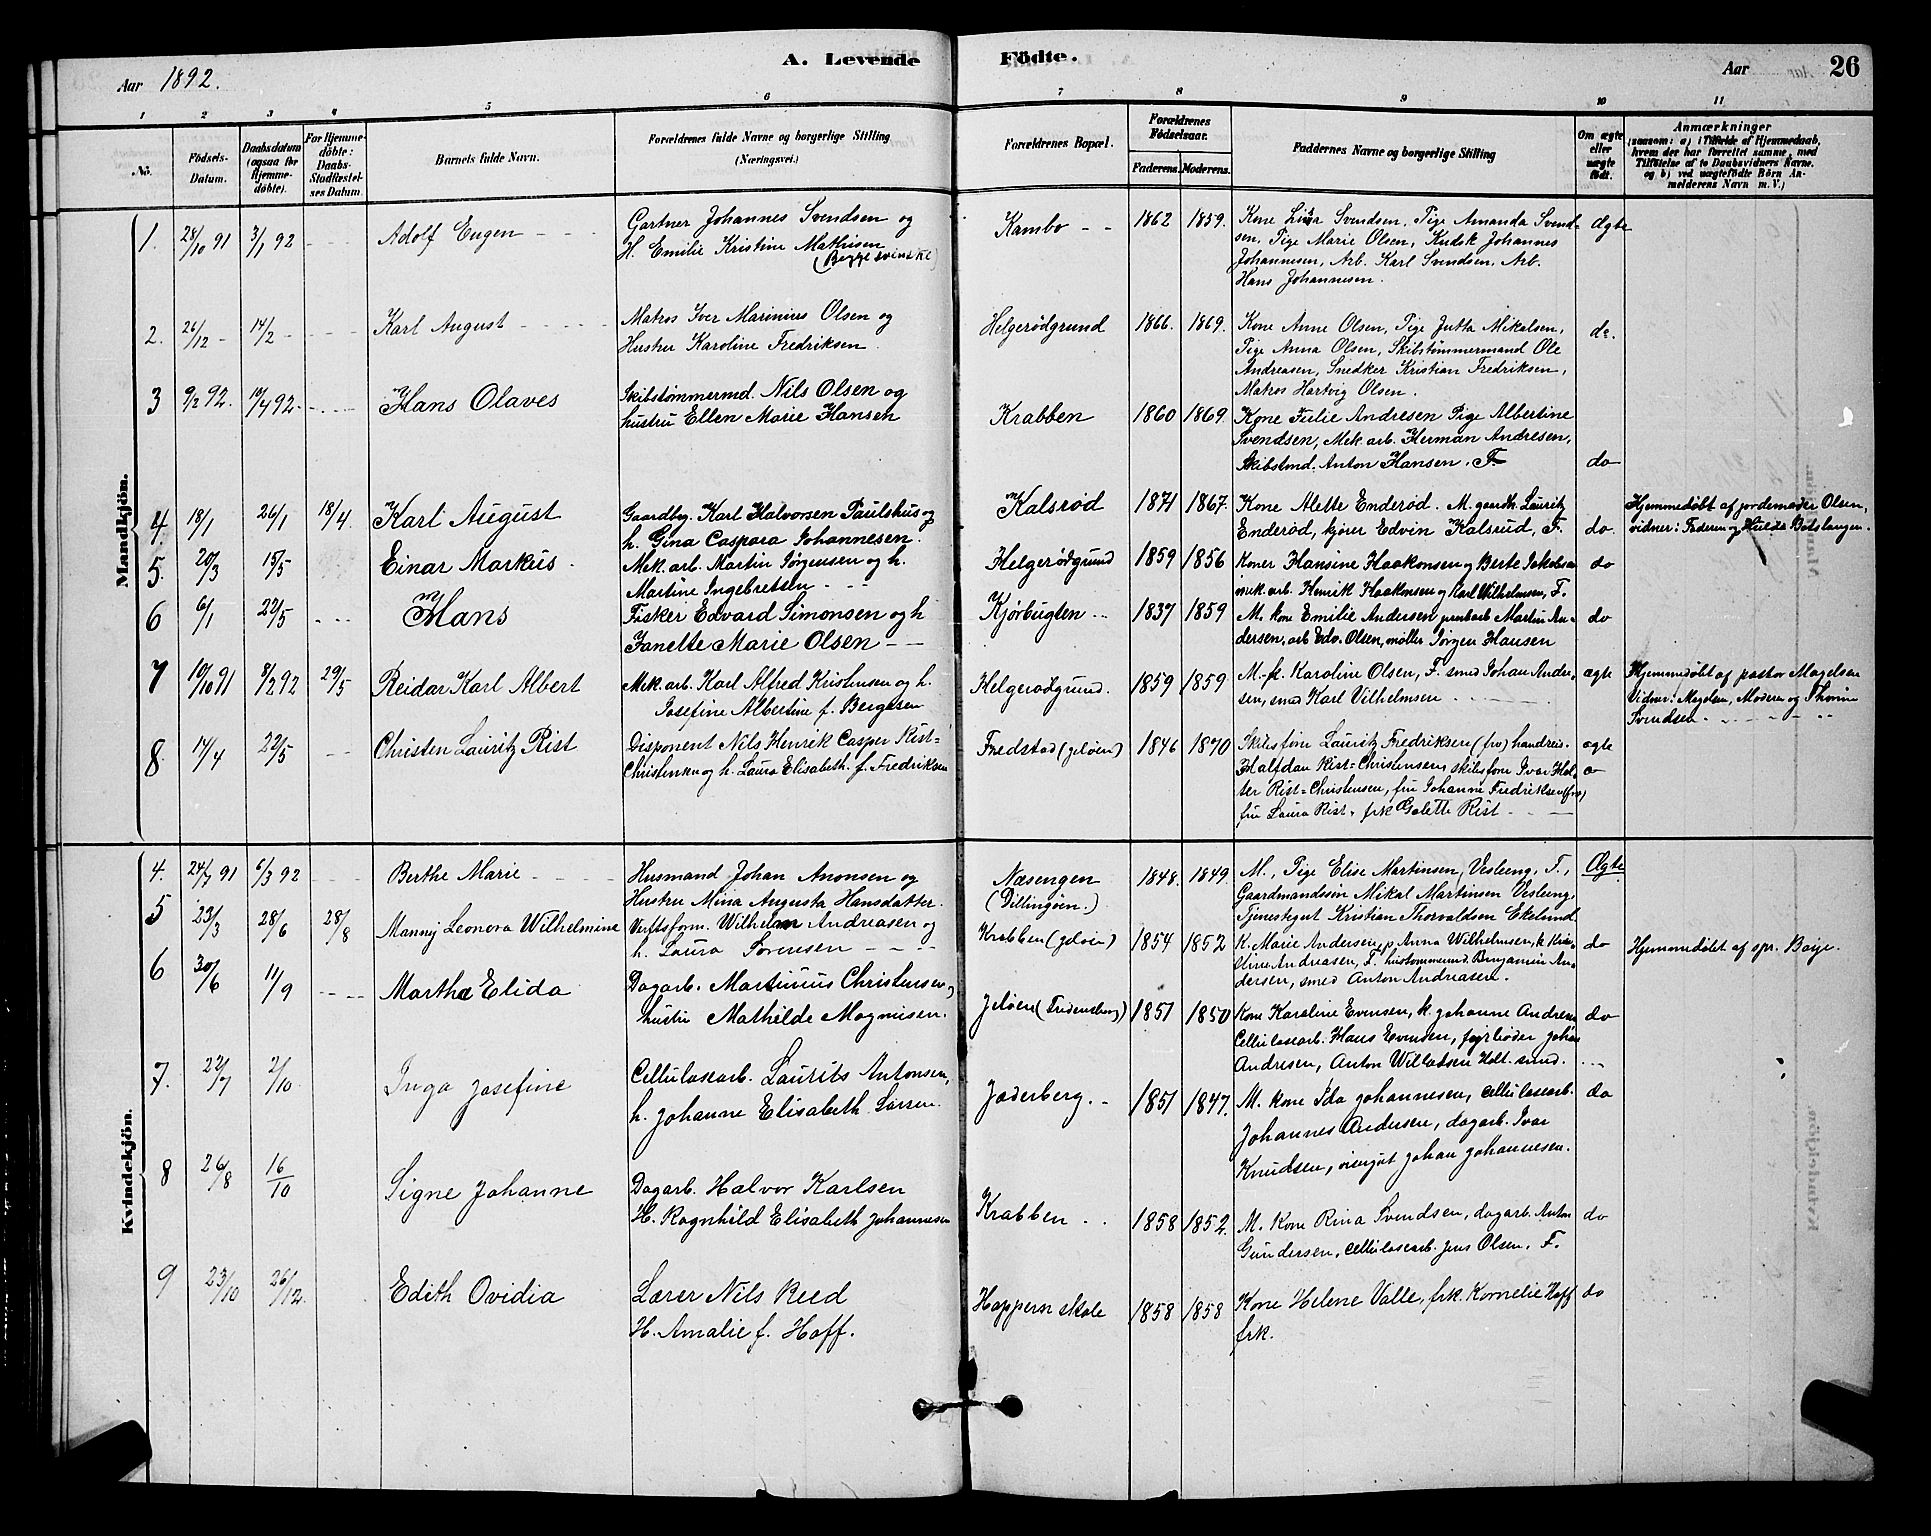 A. Levende Födte.
Aar 1892.
Aar 26
1 2 3 4 5 6 7 8 9 10 11
No.
Fødsels-Datum.
Daabsdatum (ogsaa for Hjemmedøbte).
For Hjemmedøbte: Daabs-Stadfæstelses Datum.
Barnets fulde Navn.
Forældrenes fulde Navne og borgerlige Stilling (Næringsvei.)
Forældrenes Bopæl.
Forældrenes Födselsaar.
Faderens. Moderens.
Faddernes Navne og borgerlige Stilling
Om ægte eller uægte født.
Anmærkninger (saasom: a) i Tilfælde af Hjemmedaab, hvem der har forrettet samme, med Tilföielse af to Daabsvidners Navne, og b) ved uægtefödte Börn Anmelderens Navn m. V.)
Mandkjön.
1. 28/10 91 3/1 92 - - Adolf Eugen - - -
Gartner Johannes Svendsen og
H. Emilie Kristine Mathisen
(Begge svenske)
Kambo - - 1862 1859.
Kone Lisa Svendsen, Pige Amanda Svend-
sen, Pige Marie Olsen, Kudsk Johannes
Johannesen, Arb. Karl Svendsen, Arb.
Hans Johannesen.
Ægte
2. 26/12 - 14/2 - - - Karl August - - - -
Matros Iver Marinius Olsen og
Hustru Karoline Fredriksen.
Helgerødgrund 1866. 1869.
Kone Anne Olsen, Pige Jutta Mikalsen,
Pige Anna Olsen, Skibstømmermand Ole
Andreasen, Snedker Kristian Fredriksen,
Matros Hartvig Olsen.
do.
3 9/2 92. 10/4 92. - - - Hans Olaves
Skibstømmermd. Nils Olsen og
hustru Ellen Marie Hansen
Krabben 1860 1869.
Kone Julie Andresen Pige Albertine
Svendsen, Mek. arb. Herman Andresen,
Skibstmd. Anton Hansen. F.
do
4 18/1 26/1 18/4. Karl August
Gaardbg. Karl Halvorsen Paulshus og
h. Gina Caspara Johannesen.
Kalsrød 1871 1867.
Kone Alette Enderød. M. gaardm. Lauritz
Enderød, kjører Edvin Kalsrud, F.
do.
Hjemmedøbt af jordemoder Olsen,
vidner: Faderen og Hulda Botslangen.
5. 20/3 15/5 Einar Markus.
Mek. arb. Martin Jørgensen og h.
Martine Ingebretsen - -
Helgerødgrund 1859 1856
Koner Hansine Haakonsen og Berte Jakobsen
mek arb. Henrik Haakonsen og Karl Wilhelmsen, F.
do
6 6/1 22/5 - - Hans
Fisker Edvard Simonsen og h
Janette Marie Olsen - -
Kjørbugten - - 1837 1859
M. kone Emilie Andersen arb Martin An-
dersen, arb Edv. Olsen, møller Jørgen Hansen
do
7 10/10 91 8/2 92 29/5 Reidar Karl Albert
Mek. arb. Karl Alfred Kristensen og h.
Josefine Albertine f. Bergesen
Helgerødgrund. 1859 1859
M. fr. Karoline Olsen, F. smed Johan Andre-
sen, smed Karl Vilhelmsen
ægte
Hjemmedøbt af pastor Magelsen
Vidner: Magelsen, Moderen og Thorine
Svendsen
8. 17/4 22/5 - - Christen Lauritz Rist
Disponent Nils Henrik Casper Rist-
Christensen og h. Laura Elisabeth f. Fredriksen
Fredstad (Jeløen) 1846 1870
Skibsføre Lauritz Fredriksen (fra) handreis.
Halfdan Rist-Christensen, skibsføre Ivar Hol-
ter Rist-Christensen, fru Johanne Fredriksen (fra)
fru Laura Rist, frk Galette Rist - - -
ægte
Kvindekjön.
4. 24/7 91 6/3 92 - - Berthe Marie - - - -
Husmand Johan Anonsen og
Hustru Mina Augusta Hansdatter.
Næsengen
(Dillingøen.)
1848. 1849.
M., Pige Elise Martinsen, Vesleeng, F.,
Gaardmandssøn Mikal Martinsen Vesleeng,
Tjenestegut Kristian Thorvaldsen Ekelund
Ægte
5 23/3 28/6 28/8 Manny Leonora Wilhelmine
Verftsform. Wilhelm Andreasen og
h. Laura Sørensen - - -
Krabben (Jeløen) 1854 1852
K. Marie Andersen, p Anna Wilhelmsen, k Kris-
tine Andreasen, F. hustømmermd. Benjamin An-
dersen, smed Anton Andreasen.
do
Hjemmedøbt af spr. Boije.
6 30/6 11/9 - - - Martha Elida
Dagarb. Martinius Christensen,
hustru Mathilde Magnisen.
Jeløen (Fredensborg) 1851 1850
Kone Karoline Evensen, k. Johanne Andresen
Cellulosearb. Hans Evensen, fyrbøder Johan
Andresen, Anton Willadsen Holt. smed.
do
7. 22/7 2/10. Inga Josefine
Cellulosearb. Laurits Antonsen,
h. Johanne Elisabeth Larsen.
Jaderberg. - 1851 1847.
M. kone Ida Johannesen, cellulosearb.
Johannes Andersen, dagarb. Ivar
Knudsen, visergut Johan Johannesen.
do
8 26/8 16/10 Signe Johanne
Dagarb. Halvor Karlsen
H. Ragnhild Elisabeth Johannesen
Krabben - - 1858 1852.
M. Kone Rina Svendsen, dagarb. Anton
Gundersen, cellulosearb. Jens Olsen, F.
do
9 23/10 26/12. Edith Ovidia
Lærer Nils Reed
H. Amalie f. Hoff.
Hoppern skole 1858 1858
Kone Helene Valle, frk. Kornelie Hoff
frk.
do